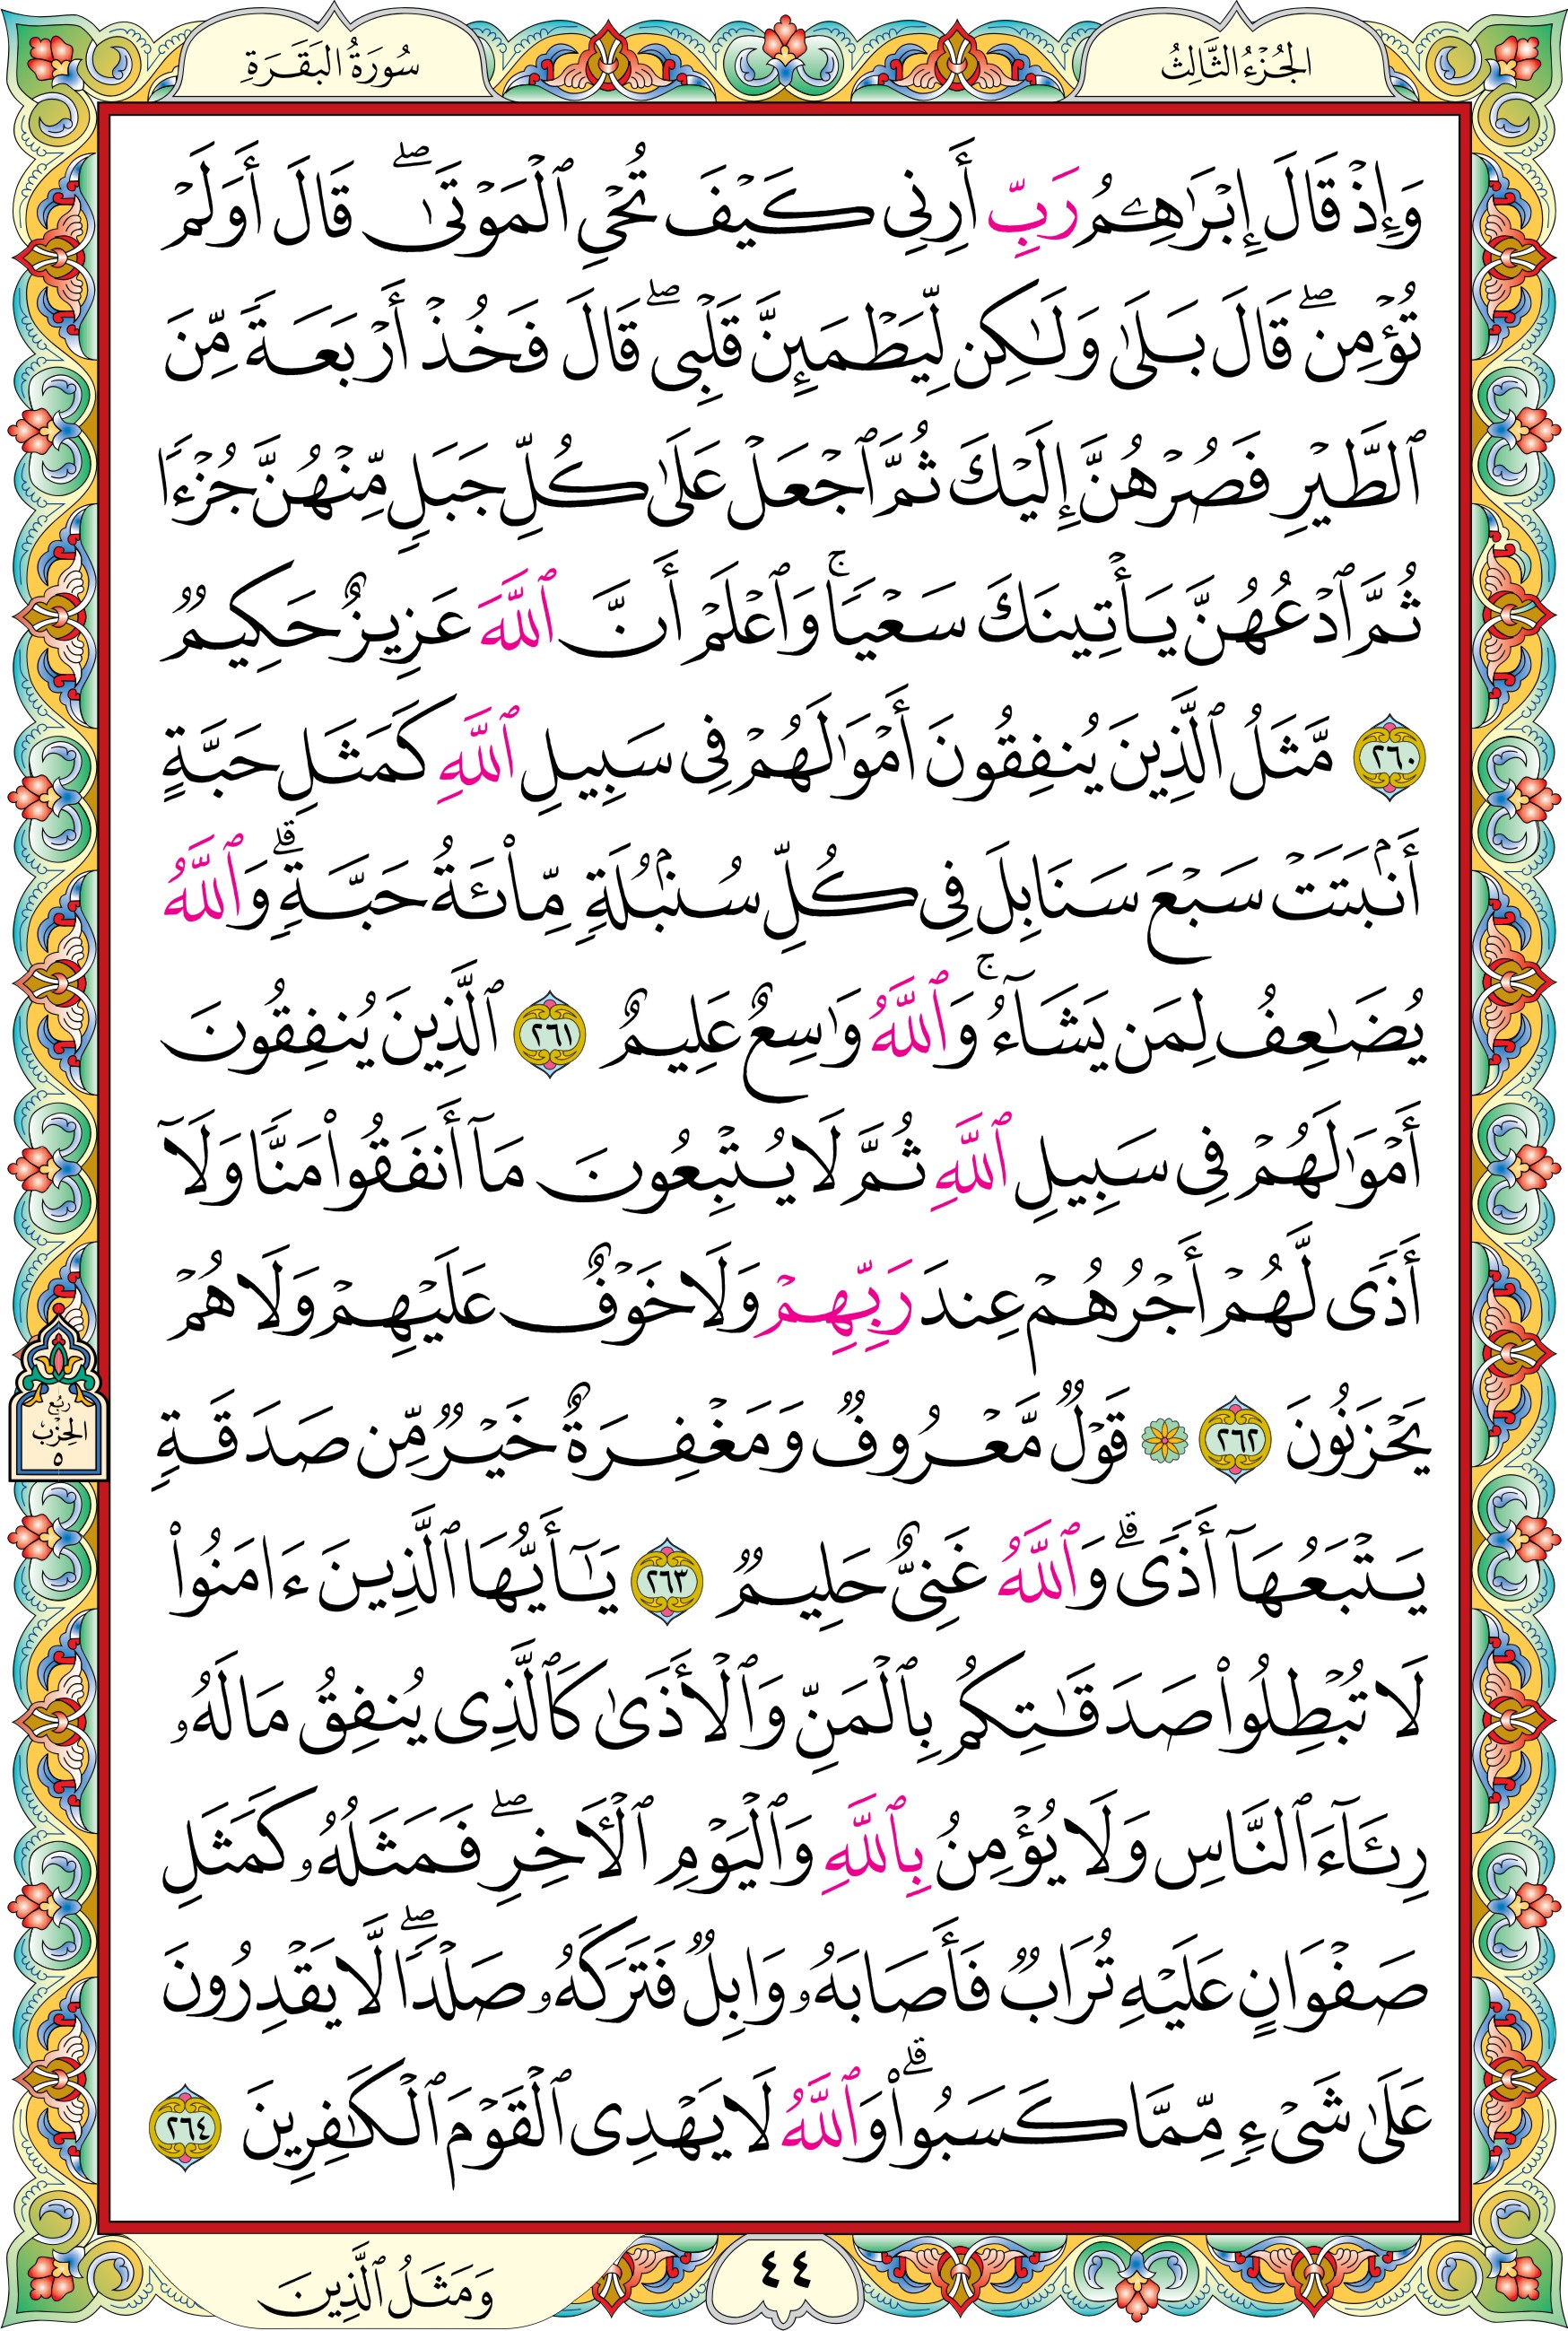 الجُزْءُ الثَّالِثُ
سُورَةُ البَقَرَةِ
وَإِذۡ قَالَ إِبۡرَٰهِـۧمُ رَبِّ أَرِنِي كَيۡفَ تُحۡيِ ٱلۡمَوۡتَىٰۖ قَالَ أَوَلَمۡ
تُؤۡمِنۖ قَالَ بَلَىٰ وَلَٰكِن لِّيَطۡمَئِنَّ قَلۡبِيۖ قَالَ فَخُذۡ أَرۡبَعَةٗ مِّنَ
ٱلطَّيۡرِ فَصُرۡهُنَّ إِلَيۡكَ ثُمَّ ٱجۡعَلۡ عَلَىٰ كُلِّ جَبَلٖ مِّنۡهُنَّ جُزۡءٗا
ثُمَّ ٱدۡعُهُنَّ يَأۡتِينَكَ سَعۡيٗاۚ وَٱعۡلَمۡ أَنَّ ٱللَّهَ عَزِيزٌ حَكِيمٞ
٢٦٠ مَّثَلُ ٱلَّذِينَ يُنفِقُونَ أَمۡوَٰلَهُمۡ فِي سَبِيلِ ٱللَّهِ كَمَثَلِ حَبَّةٍ
أَنۢبَتَتۡ سَبۡعَ سَنَابِلَ فِي كُلِّ سُنۢبُلَةٖ مِّاْئَةُ حَبَّةٖۗ وَٱللَّهُ
يُضَٰعِفُ لِمَن يَشَآءُۚ وَٱللَّهُ وَٰسِعٌ عَلِيمٌ ٢٦١ ٱلَّذِينَ يُنفِقُونَ
أَمۡوَٰلَهُمۡ فِي سَبِيلِ ٱللَّهِ ثُمَّ لَا يُتۡبِعُونَ مَآ أَنفَقُواْ مَنّٗا وَلَآ
أَذٗى لَّهُمۡ أَجۡرُهُمۡ عِندَ رَبِّهِمۡ وَلَا خَوۡفٌ عَلَيۡهِمۡ وَلَا هُمۡ
يَحۡزَنُونَ ٢٦٢ ۞ قَوۡلٞ مَّعۡرُوفٞ وَمَغۡفِرَةٌ خَيۡرٞ مِّن صَدَقَةٖ
رُبُع
الحِزۡب
٥
يَتۡبَعُهَآ أَذٗىۗ وَٱللَّهُ غَنِيٌّ حَلِيمٞ ٢٦٣ يَٰٓأَيُّهَا ٱلَّذِينَ ءَامَنُواْ
لَا تُبۡطِلُواْ صَدَقَٰتِكُم بِٱلۡمَنِّ وَٱلۡأَذَىٰ كَٱلَّذِي يُنفِقُ مَالَهُۥ
رِئَآءَ ٱلنَّاسِ وَلَا يُؤۡمِنُ بِٱللَّهِ وَٱلۡيَوۡمِ ٱلۡأٓخِرِۖ فَمَثَلُهُۥ كَمَثَلِ
صَفۡوَانٍ عَلَيۡهِ تُرَابٞ فَأَصَابَهُۥ وَابِلٞ فَتَرَكَهُۥ صَلۡدٗاۖ لَّا يَقۡدِرُونَ
عَلَىٰ شَيۡءٖ مِّمَّا كَسَبُواْۗ وَٱللَّهُ لَا يَهۡدِي ٱلۡقَوۡمَ ٱلۡكَٰفِرِينَ ٢٦٤
٤٤
وَمَثَلُ ٱلَّذِينَ